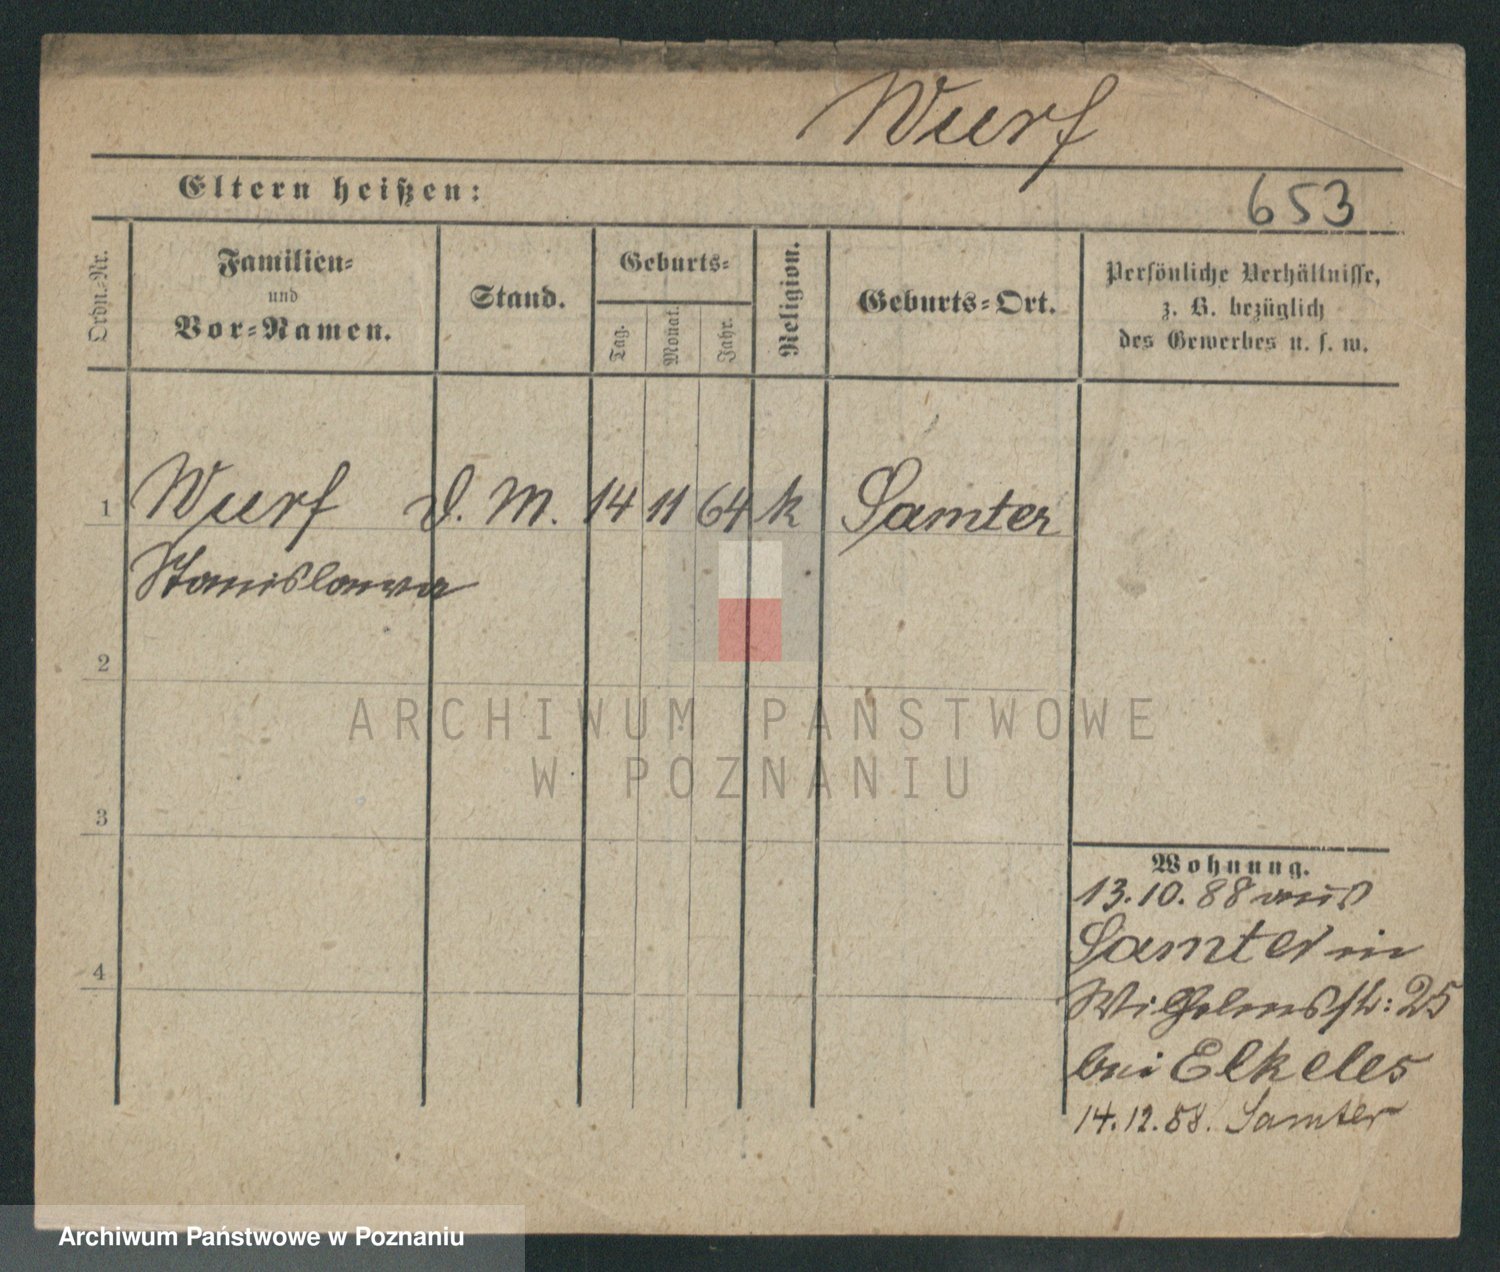 Wurf
Eltern heißen:
653
Ordn.-Nr.
Familien-
und
Vor-Namen.
Stand.
Geburts-
Tag.
Monat.
Jahr.
Religion.
Geburts-Ort.
Persönliche Verhältnisse,
z. B. bezüglich
des Gewerbes u. s. w.
1 Wurf d. M. 14 11 64 k Samter
Stanislawa
2
ARCHIWUM PAŃSTWOWE
W POZNANIU
3
Wohnung.
13.10.88 aus
Samter in
Wilhelmstr: 25
bei Elkeles
14.12.88. Samter
4
Archiwum Państwowe w Poznaniu